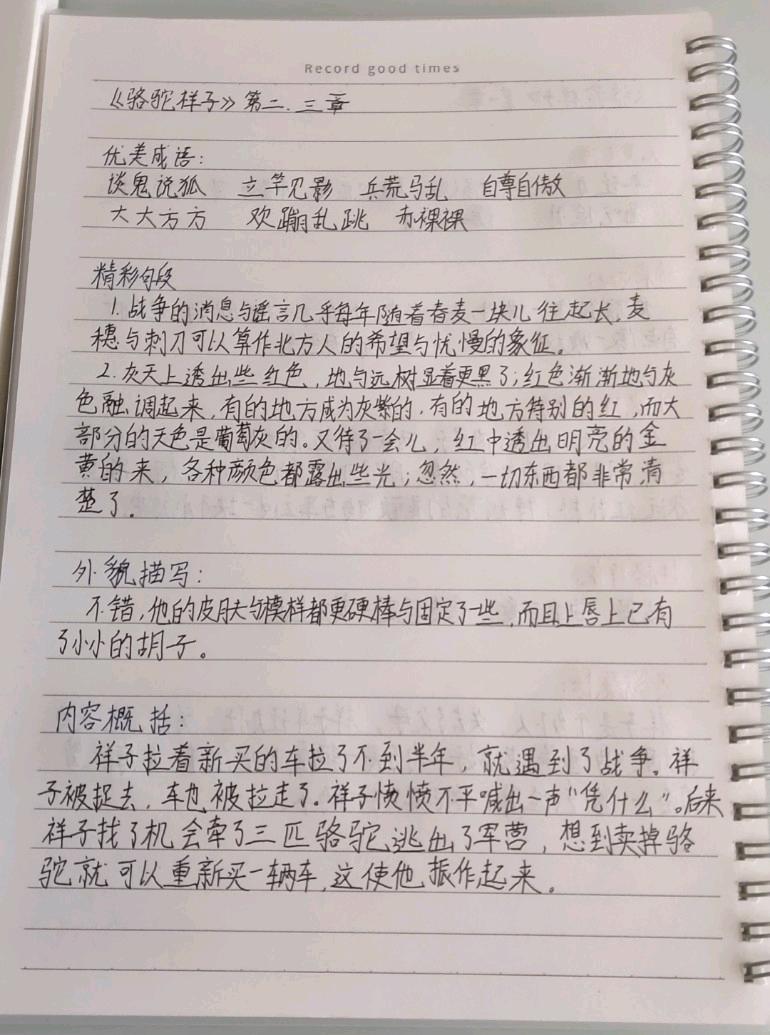 Record good times
《骆驼祥子》第二、三章
优美成语：
谈鬼说狐 立竿见影 兵荒马乱 自尊自傲
大大方方 欢蹦乱跳 赤裸裸
精彩句段
1.战争的消息与谣言几乎每年随着春麦一块儿往起长，麦
穗与刺刀可以算作北方人的希望与忧慢的象征。
2.灰天上透出些红色，地与远树显着更黑了；红色渐渐地与灰
色融调起来，有的地方成为灰紫的，有的地方特别的红，而大
部分的天色是葡萄灰的。又待了一会儿，红中透出明亮的金
黄的来，各种颜色都露出些光；忽然，一切东西都非常清
楚了。
外貌描写：
不错，他的皮肤与模样都更硬棒与固定了一些，而且上唇上已有
了小小的胡子。
内容概括：
祥子拉着新买的车拉了不到半年，就遇到了战争。祥
子被捉去，车也被拉走了。祥子愤愤不平喊出一声“凭什么”。后来
祥子找了机会牵了三匹骆驼逃出了军营，想到卖掉骆
驼就可以重新买一辆车，这使他振作起来。